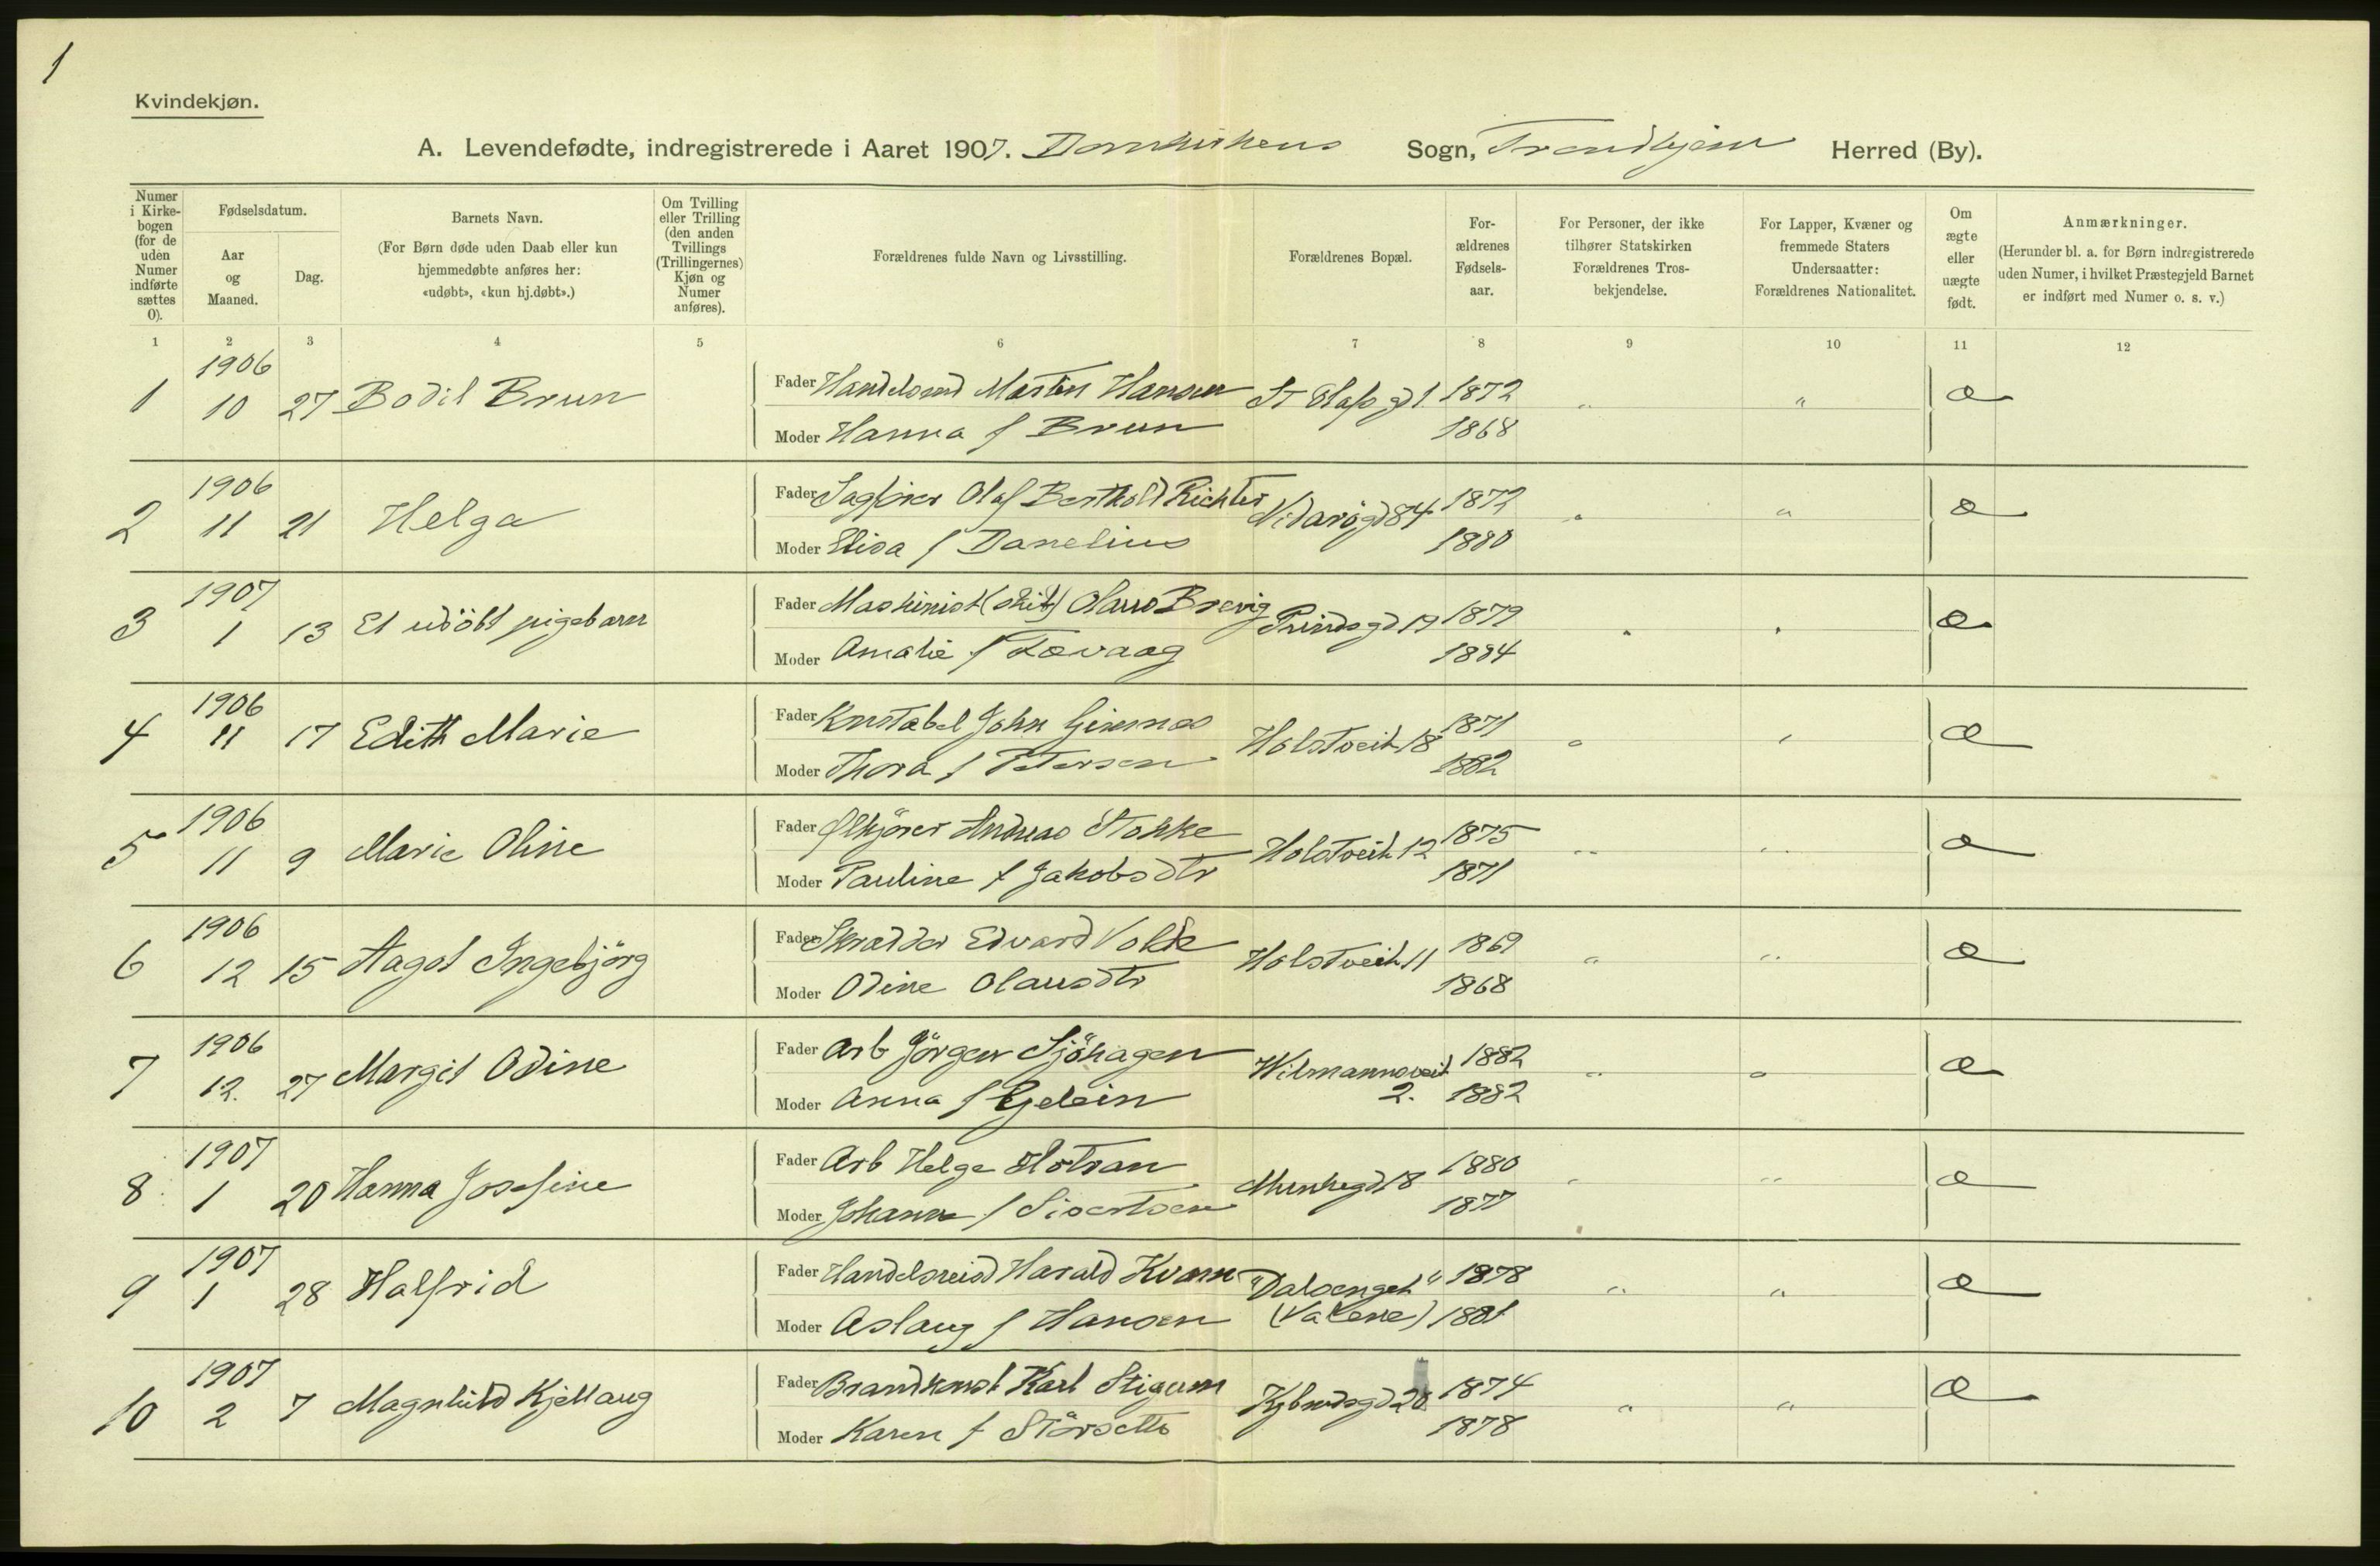 1
Kvindekjøn.
A. Levendefødte, indregistrerede i Aaret 1907. Domkirkens Sogn, Trondhjem Herred (By).
Numer i Kirkebogen (for de uden Numer indførte sættes 0).
Fødselsdatum.
Aar og Maaned.
Dag.
Barnets Navn.
(For Børn døde uden Daab eller kun hjemmedøbte anføres her: «udøbt», «kun hj.døbt».)
Om Tvilling eller Trilling (den anden Tvillings (Trillingernes) Kjøn og Numer anføres).
Forældrenes fulde Navn og Livsstilling.
Forældrenes Bopæl.
Forældrenes Fødselsaar.
For Personer, der ikke tilhører Statskirken Forældrenes Trosbekjendelse.
For Lapper, Kvæner og fremmede Staters Undersaatter: Forældrenes Nationalitet.
Om ægte eller uægte født.
Anmærkninger.
(Herunder bl. a. for Børn indregistrerede uden Numer, i hvilket Præstegjeld Barnet er indført med Numer o. s. v.)
1 2 3 4 5 6 7 8 9 10 11 12
1 1906 10 27 Bodil Brun Fader Handelsmd Martin Hansen St Olafs gd 1. 1872 " " æ
Moder Hanna f Brun 1868
2 1906 11 21 Helga Fader Sagfører Olaf Berthold Richter Nidarösgd 84 1872 " " æ
Moder Elisa f Danelius 1880
3 1907 1 13 Et udöbt pigebarn Fader Maskinist (skib) Olaus Brevig Prindsgd 19 1879 " " æ
Moder Amalie f Tævaag 1884
4 1906 11 17 Edith Marie Fader Konstabel John Holstveit 18 1871 " " æ
Moder Thora f Petersen 1882
5 1906 11 9 Marie Oline Fader Ølkjører Andreas Stokke Holstveit 12 1875 " " æ
Moder Pauline f Jakobsdtr 1871
6 1906 12 15 Aagot Ingebjörg Fader Skrædder Edvard Holstveit 11 1869 " " æ
Moder Odine Olausdtr 1868
7 1906 12. 27 Margit Odine Fader Arb Jörgen Sjöhagen Wilmannsveit 2. 1882 " " æ
Moder Anna f 1882
8 1907 1 20 Hanna Josefine Fader Arb Helge Hotran Munkegd 18 1880 " " æ
Moder Johanna f Sivertsen 1877
9 1907 1 28 Halfrid Fader Handelsreisd Harald Kvam "Dalsenget" 1878 " " æ
Moder Aslaug f Hansen 1881
10 1907 2 7 Magnhild Kjellaug Fader Brandkonst Karl Stigum Kjbmdsgd 20 1874 " " æ
Moder Karen f Störseth 1878